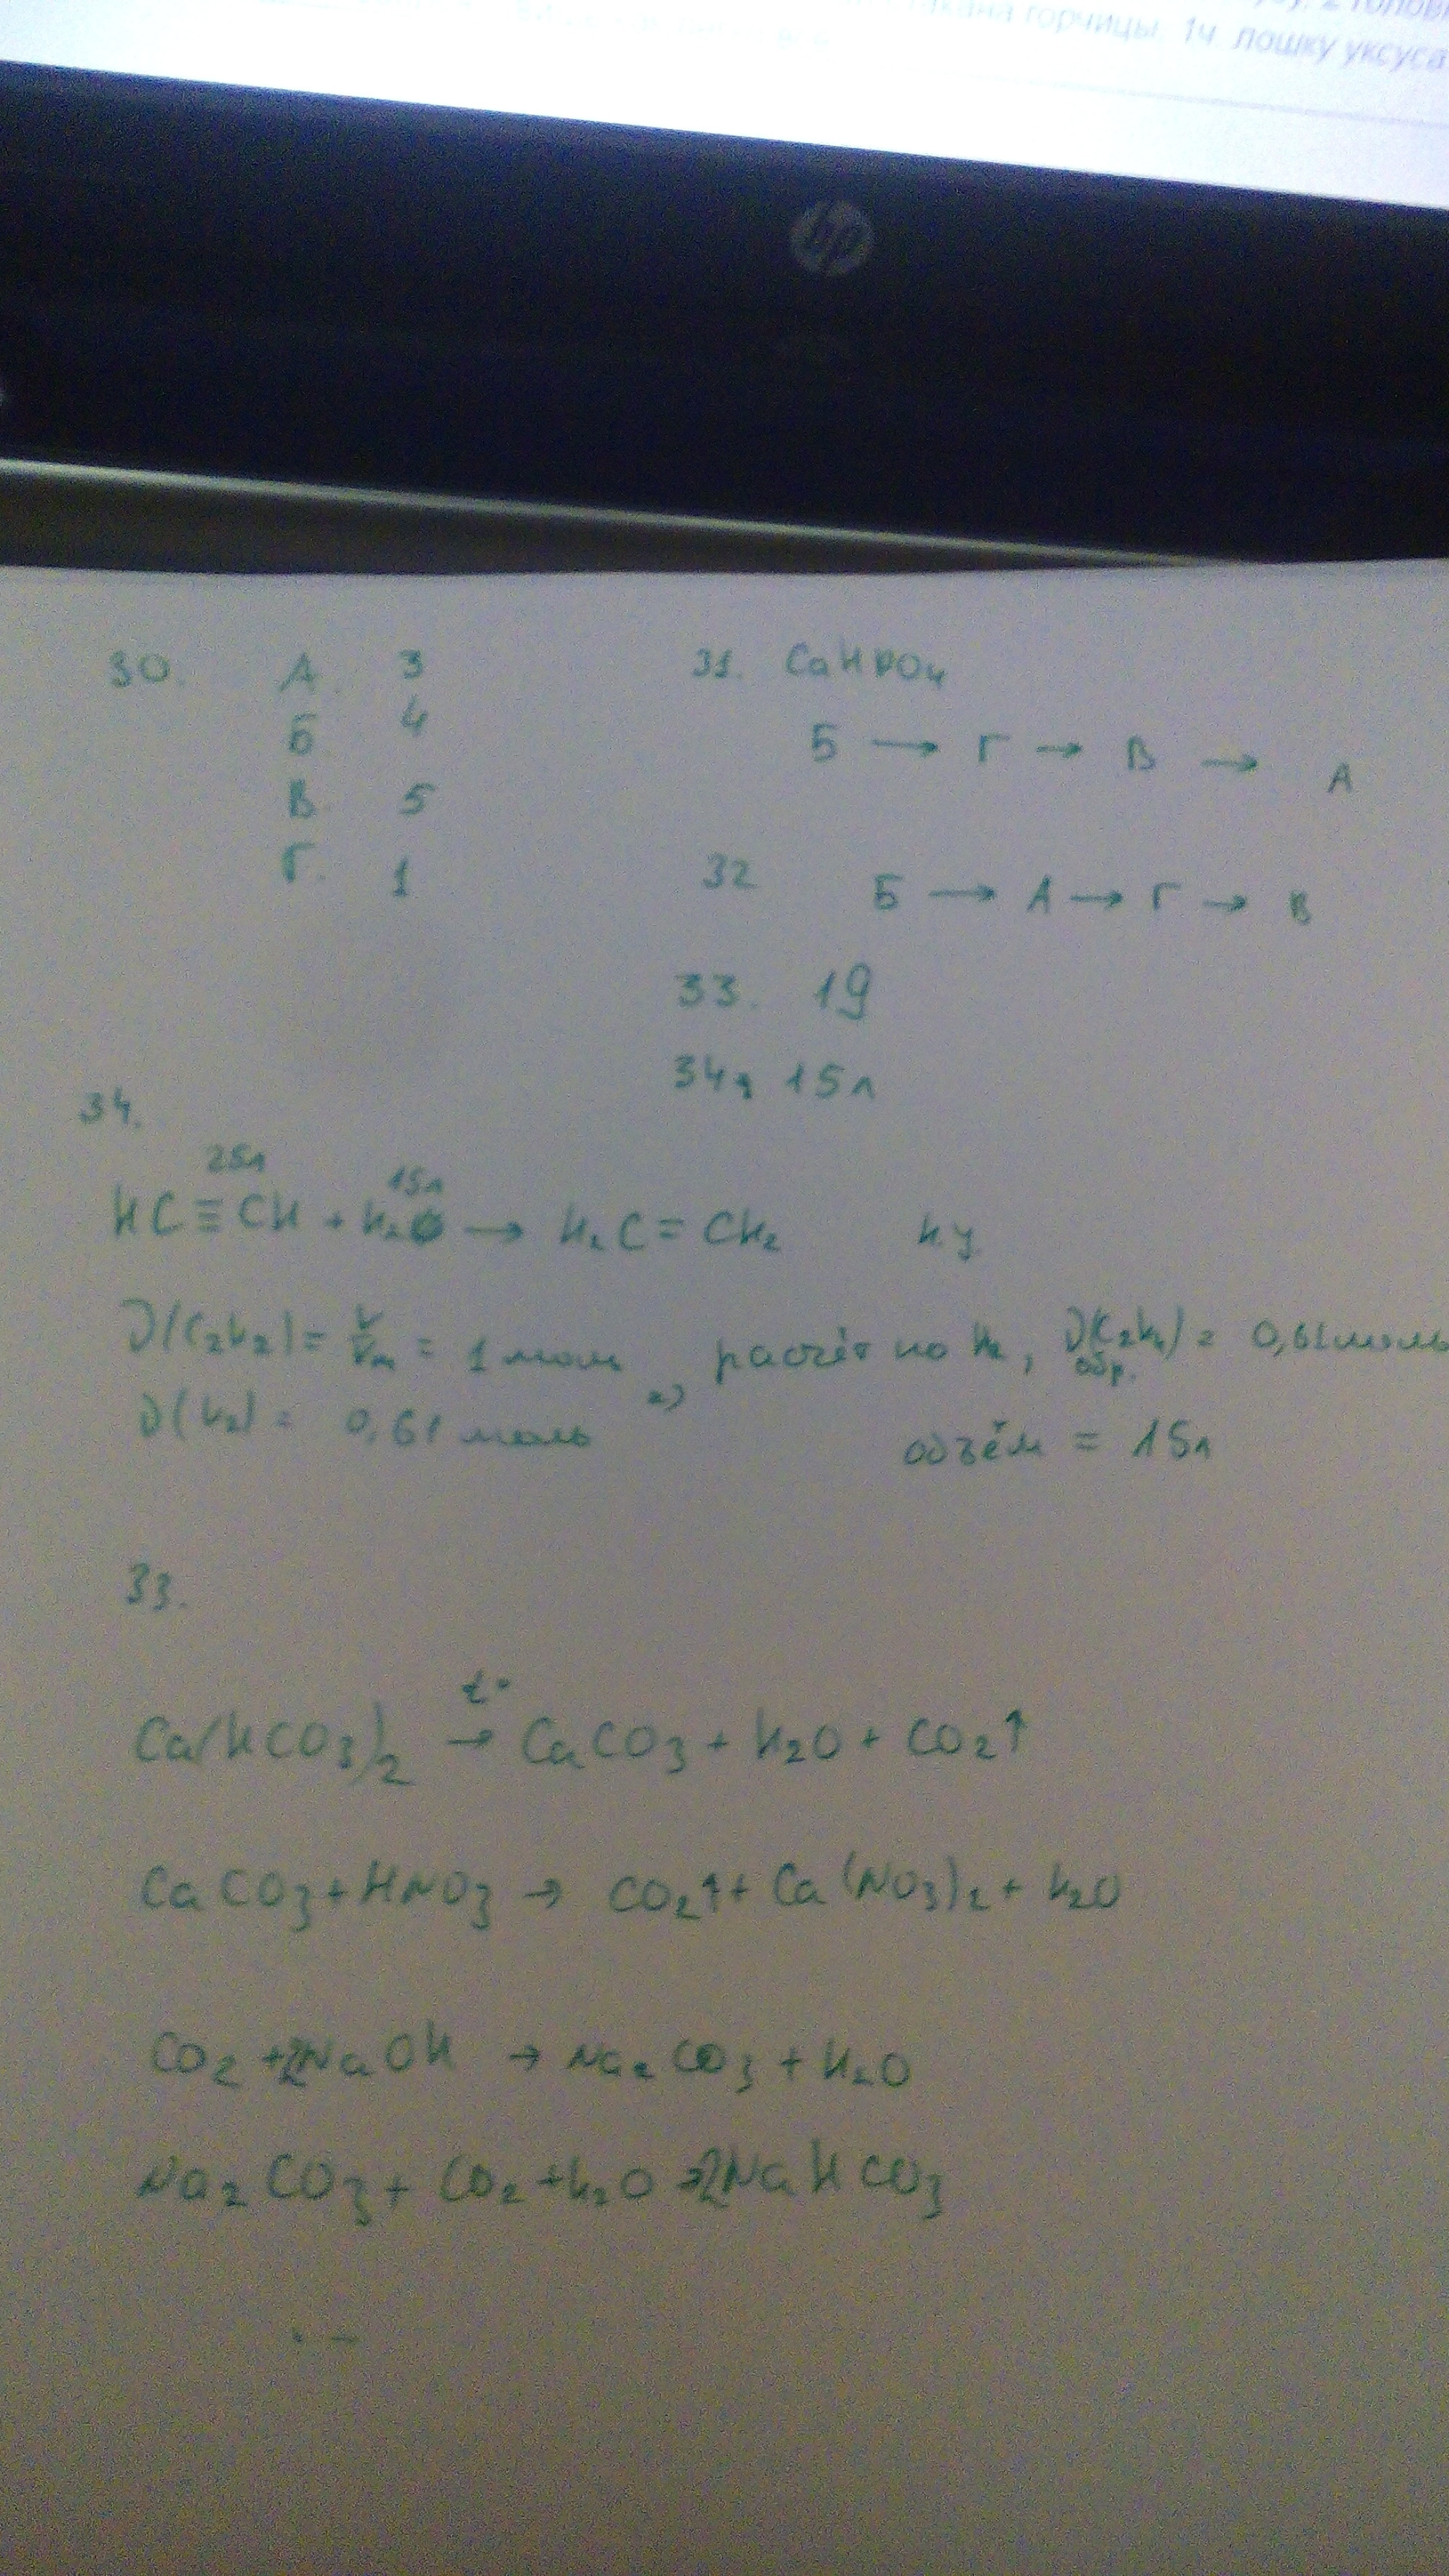 стакана горчицы, 1ч. лошку уксуса
hp
30. А. 3
Б 4
В. 5
Г. 1
31. CaHPO4
Б → Г → В → А
32 Б → А → Г → В
33. 19
34. 15л
34.
25л 15л
HC≡CH + H2 → H2C=CH2 н.у
ν(C2H2) = V/Vm = 1 моль, расчёт по H2, ν(C2H4) обр. = 0,61 моль
ν(H2) = 0,61 моль
объём = 15л
33.
t°
Ca(HCO3)2 → CaCO3 + H2O + CO2↑
CaCO3 + HNO3 → CO2↑ + Ca(NO3)2 + H2O
CO2 + 2NaOH → Na2CO3 + H2O
Na2CO3 + CO2 + H2O → 2NaHCO3